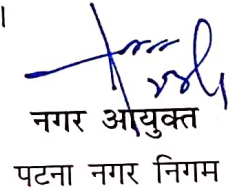 ।
नगर आयुक्त
पटना नगर निगम